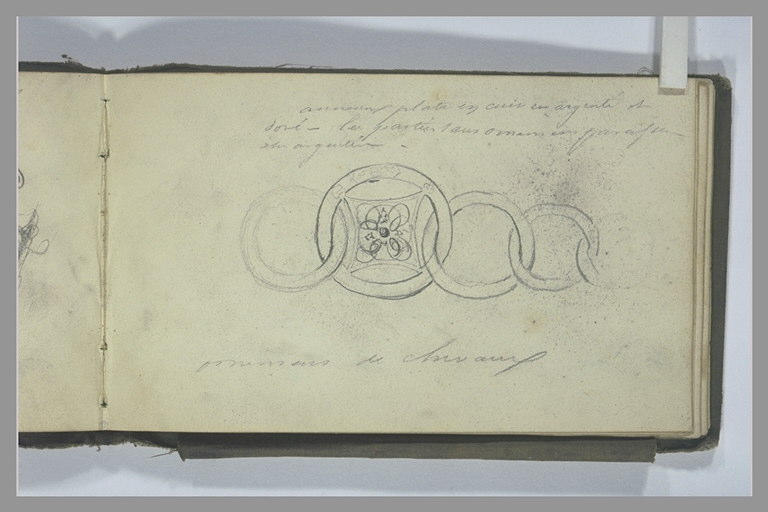 anneaux plats en cuir en argenté et
doré - les parties sans ornemens
en argenté -
ornemens de chevaux